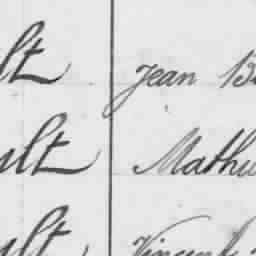 lt Jean B
ult Mathu
ult Vincent